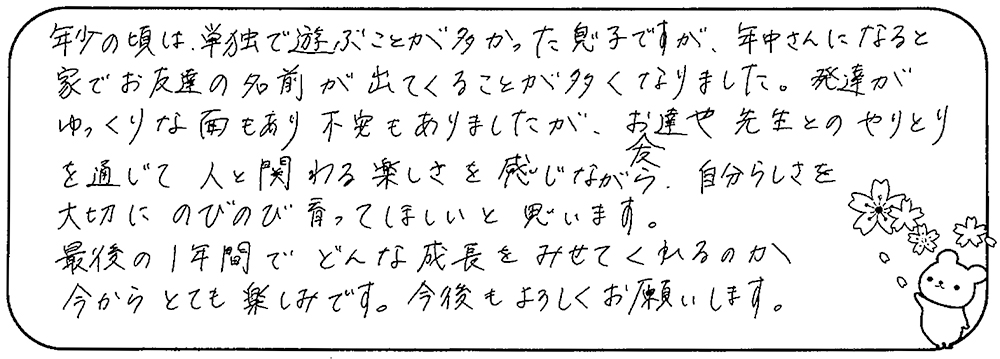 年少の頃は、単独で遊ぶことが多かった息子ですが、年中さんになると
家でお友達の名前が出てくることが多くなりました。発達が
ゆっくりな面もあり不安もありましたが、お友達や先生とのやりとり
を通じて人と関わる楽しさを感じながら、自分らしさを
大切にのびのび育ってほしいと思います。
最後の1年間でどんな成長をみせてくれるのか、
今からとても楽しみです。今後もよろしくお願いします。